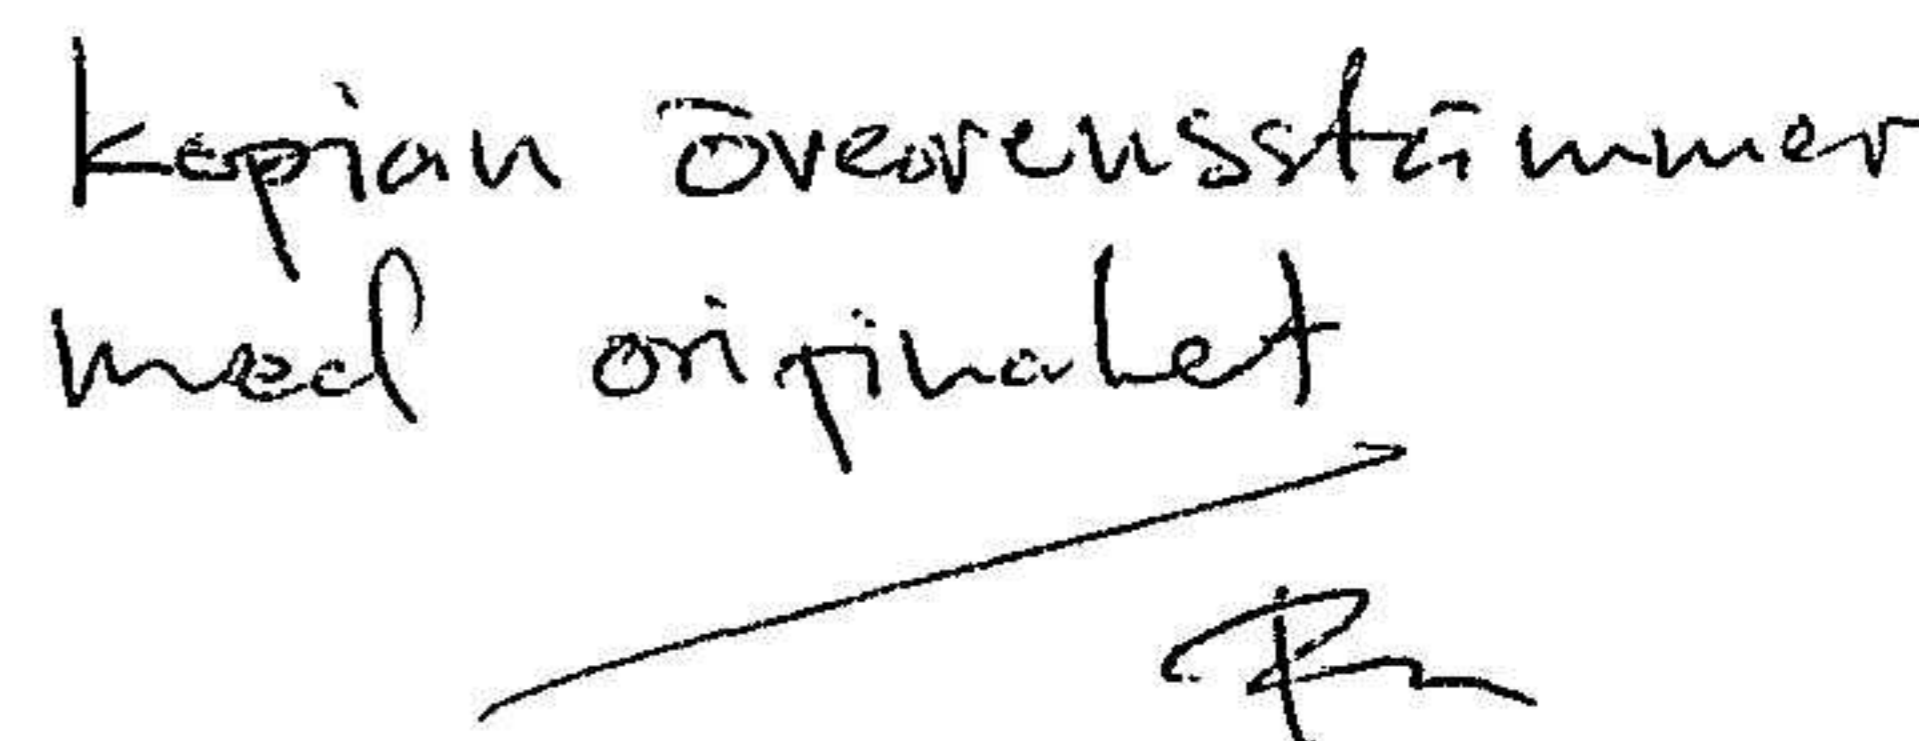 kopian överrensstämmer
med originalet